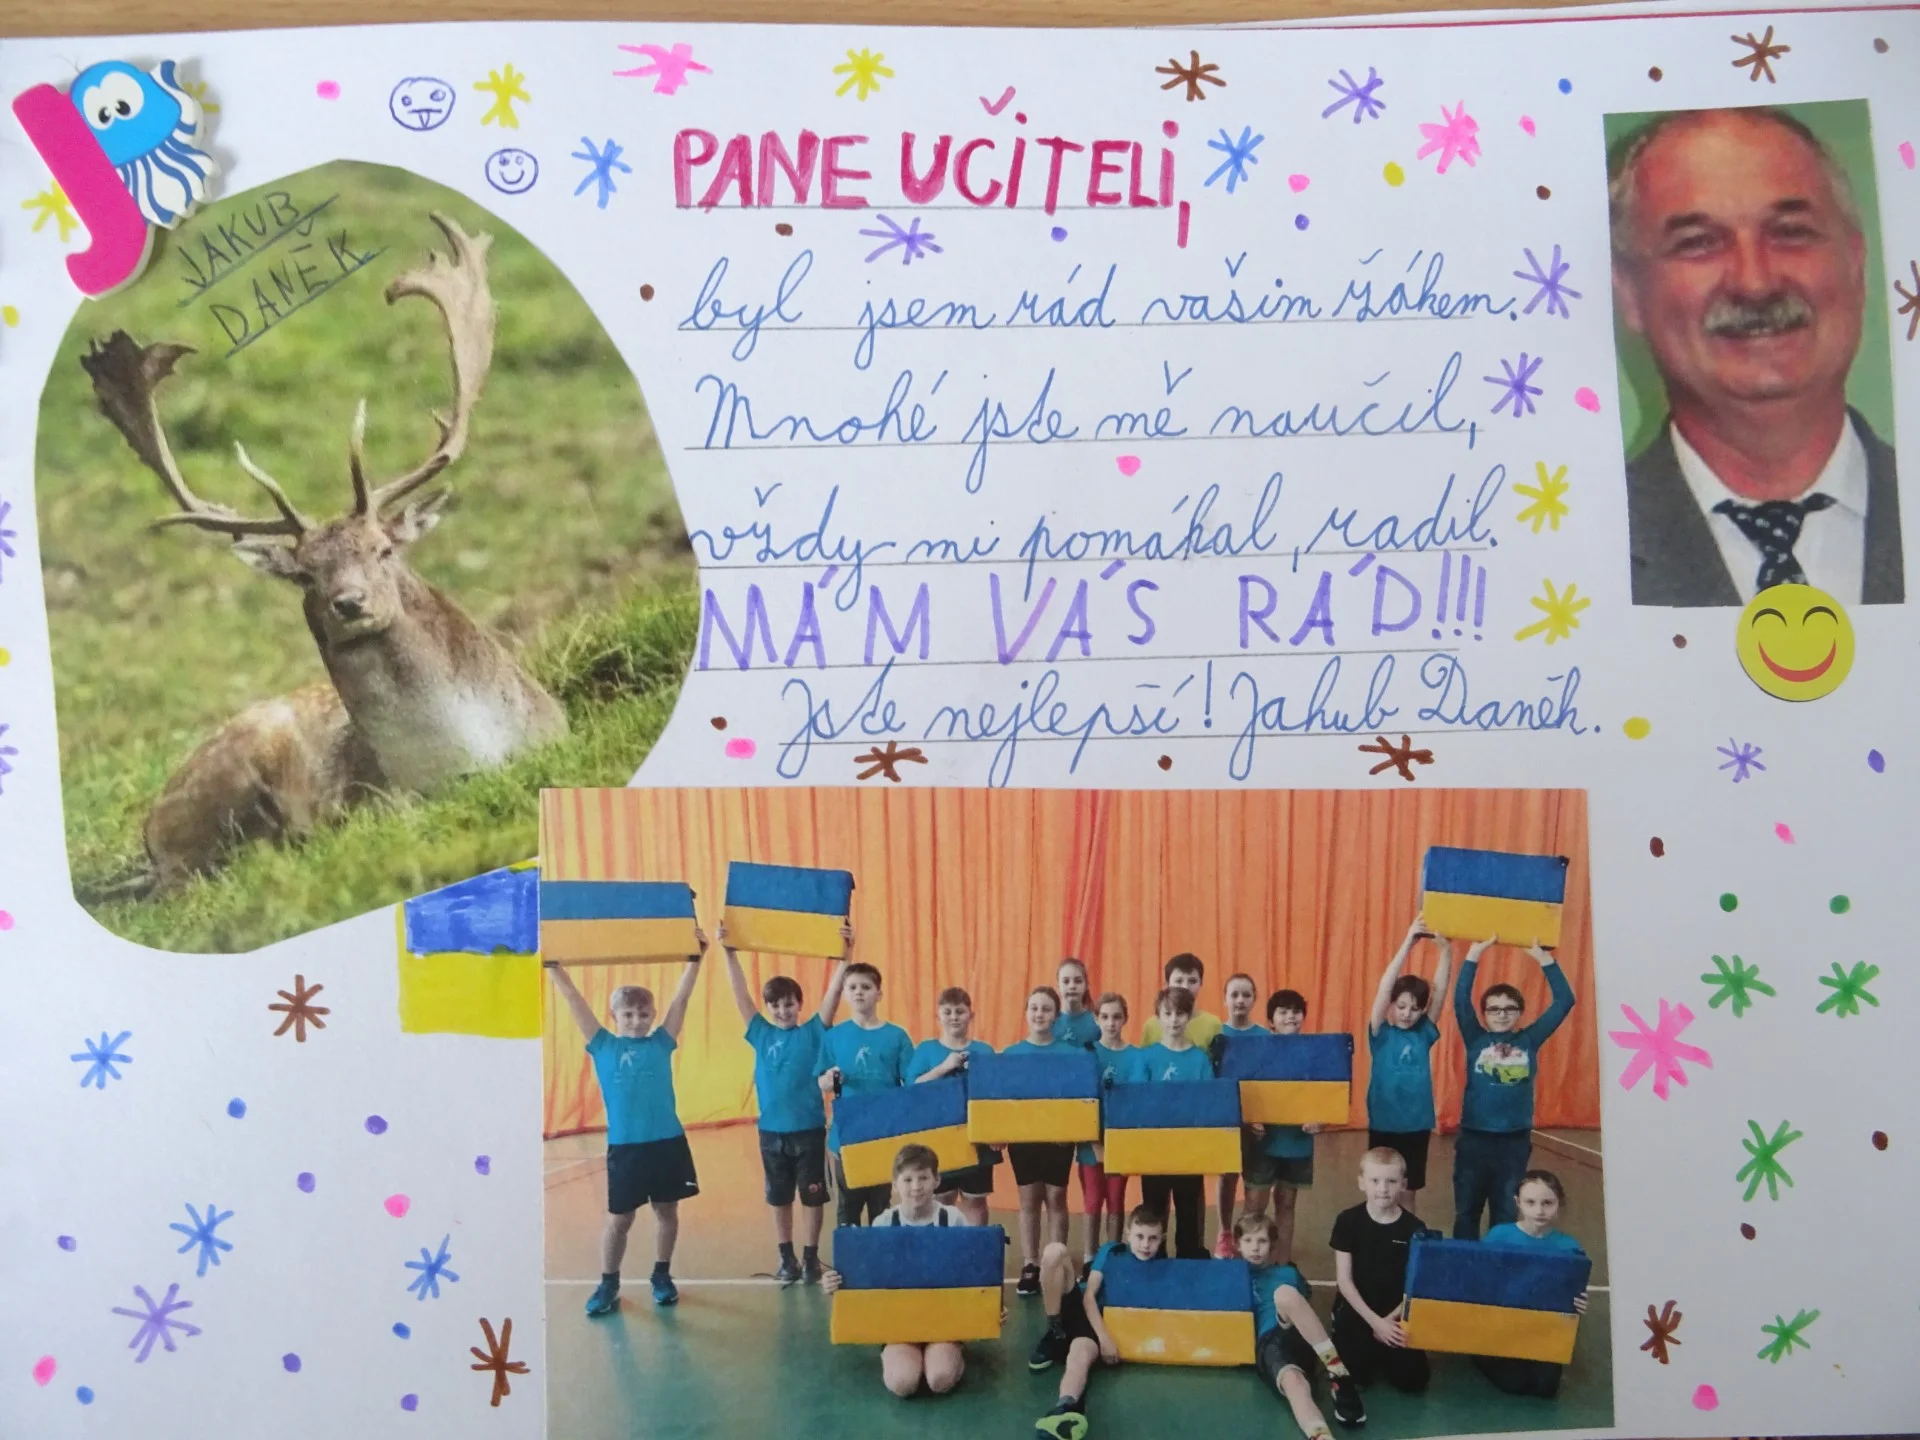 J
JAKUB
DANĚK
PANE UČITELI,
byl jsem rád vašim žákem.
Mnohé jste mě naučil,
vždy mi pomáhal, radil.
MÁM VÁS RÁD!!!
Jste nejlepší! Jakub Daněk.